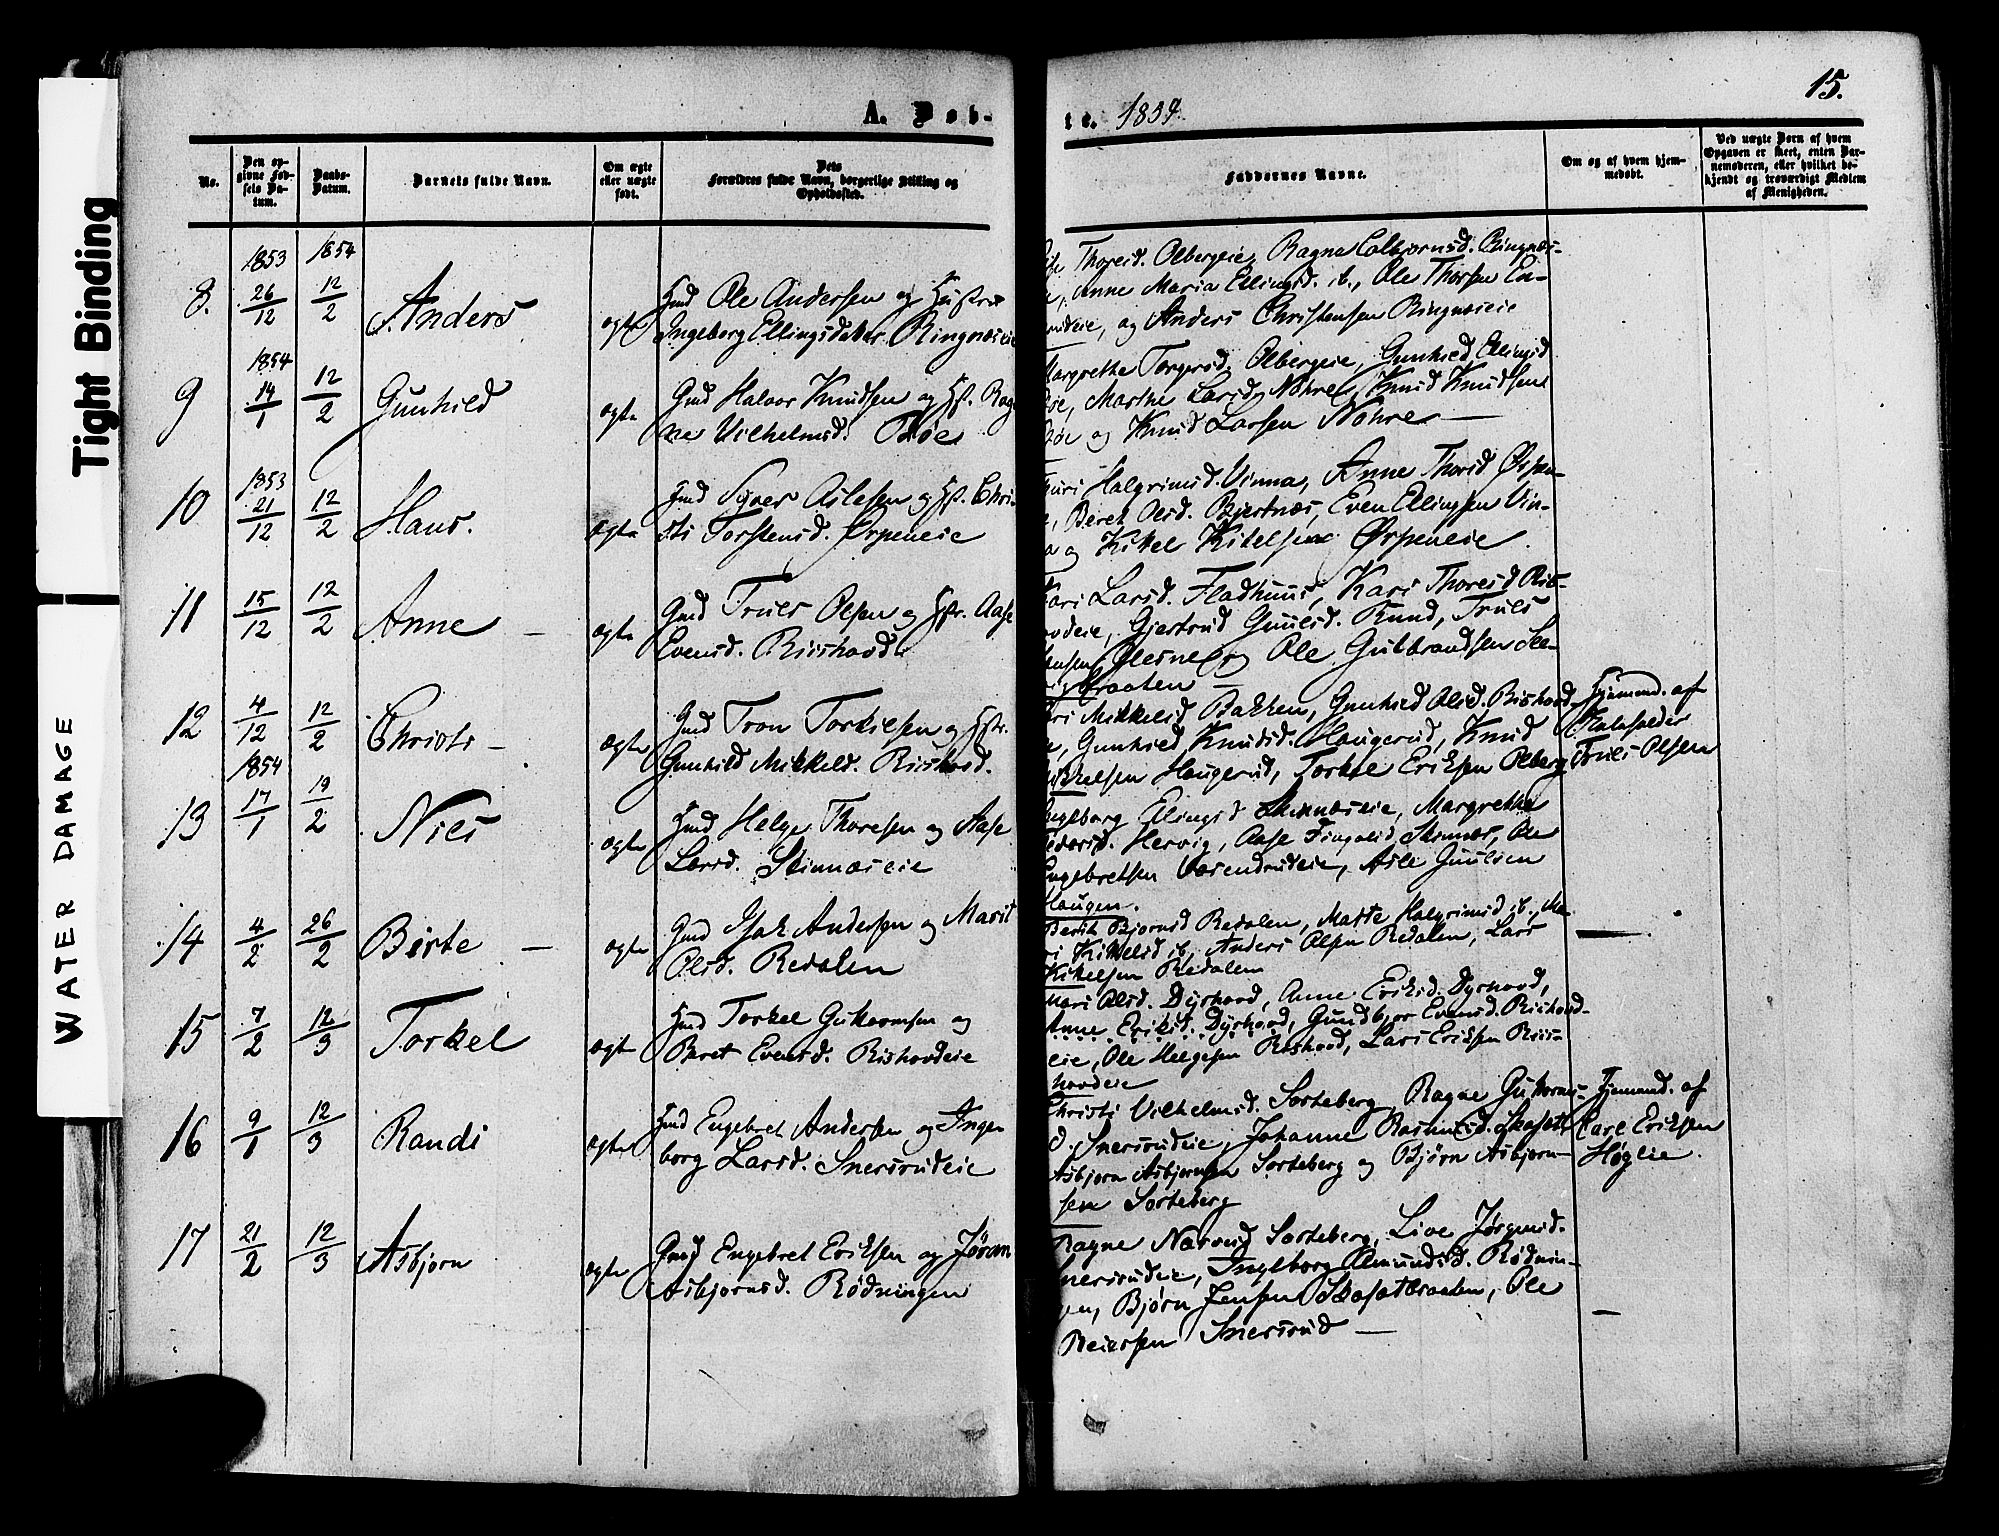 Tight Binding
WATER DAMAGE
A. Døb-
te. 1854.
15.
No.
Den op-
givne Fød-
sels Da-
tum.
Daabs-
Datum.
Barnets fulde Navn.
Om ægte
eller uægte
født.
Dets
Forældres fulde Navn, borgerlige Stilling og
Opholdssted.
Faddernes Navne.
Om og af hvem hjem-
medøbt.
Ved uægte Børn af hvem
Opgaven er skeet, enten Bar-
nemoderen, eller hvilket be-
kjendt og troværdigt Medlem
af Menigheden.
1853 1854
8. 26/12 12/2 Anders ægte
Hmd Ole Andersen og Hustru
Ingeborg Ellingsdatter Ringnæseie
Thoresd. Olbergeie, Ragne Colbjørnsd. Ringnæs-
Anne Maria Ellingsd. ib., Ole Thorsen En-
rudeie, og Anders Christensen Ringnæseie
1854
9 14/1 12/2 Gunhild ægte
Gmd Halvor Knudsen og Hst. Rag-
ne Vilhelmsd. Bøe
Margrethe Torgersd. Olbergeie, Gunhild Ellingsd
Bøe, Marthe Larsd. Nohre, Knud Knudsen
Bøe og Knud Larsen Nohre —
1853
10 21/12 12/2 Hans. ægte
Hmd Syver Aslesen og Hst. Chri-
sti Torstensd. Ørpeneie
Guri Halgrimsd. Vinna, Anne Thorsd Ørpen-
Beret Olsd. Bjertnæs, Even Ellingsen Vin-
na og Kittel Kittelsen Ørpeneie.
11 15/12 12/2 Anne — ægte
Gmd Truls Olsen og Hstr. Aase
Evensd. Riishovd.
Kari Larsd. Fladhuus, Kari Thoresd Ris-
hovdeie, Gjertrud Guulsd. Rund, Truls
Hansen Glesne og Ole Gulbrandsen See-
rigbraaten —
12 4/12 12/2 Christi — ægte
Gmd Tron Torkilsen og Hstr.
Gunhild Mikkelsd. Riishovd.
Mikkelsd Bakken, Gunhild Olsd. Rishovd-
e, Gunhild Knudsd. Haugerud, Knud
Mikkelsen Haugerud, Torkel Eriksen Olberg
Hjemmd. af
Skoleholder
Truls Olsen
1854
13 17/1 19/2 Niels ægte
Hmd Helge Thoresen og Aase
Larsd. Skinnæseie
Ingeborg Ellingsd Skinnæseie, Margrethe
Pedersd. Hervig, Aase Fingalsd Skinnæs, Ole
Engebretsen Vasendrudeie, Asle Guulsen
Haugen.
14 4/2 26/2 Birte — ægte
Gmd Isak Andersen og Marit
Olsd. Redalen
Berit Bjørnsd Redalen, Marte Halgrimsd ib., Ma-
ri Kittelsd ib, Anders Olsen Redalen, Lars
Kittelsen Redalen
—
15 7/2 12/3 Torkel ægte
Hmd Torkel Guttormsen og
Beret Evensd. Rishovdeie
Mari Olsd. Dyrhovd, Anne Eriksd. Dyrhovd,
Anne Eriksd. Dyrhovd, Gundbjør Evensd. Rishovd-
eie, Ole Helgesen Rishovd, Lars Eriksen Riis-
hovdeie
16 9/1 12/3 Randi ægte
Hmd Engebret Andersen og Inge-
borg Larsd. Snersrudeie
Christi Vilhelmsd. Sorteberg, Ragne Guttorms-
d. Snersrudeie, Johanne Rasmusd. Skafott
Asbjørn Asbjørnsen Sorteberg og Bjørn Asbjørn-
sen Sorteberg
Hjemmd. af
Carl Eriksen
Høglie.
17 21/2 12/3 Asbjørn ægte
Gmd Engebret Eriksen og Jøran
Asbjørnsd. Rødningen
Ragne Narvesd Sorteberg, Live Jørgensd.
Snersrudeie, Ingeborg Amundsd. Rødnin-
gen, Bjørn Jensen Skafotbraaten, Ole
Reiersen Snersrud —
—